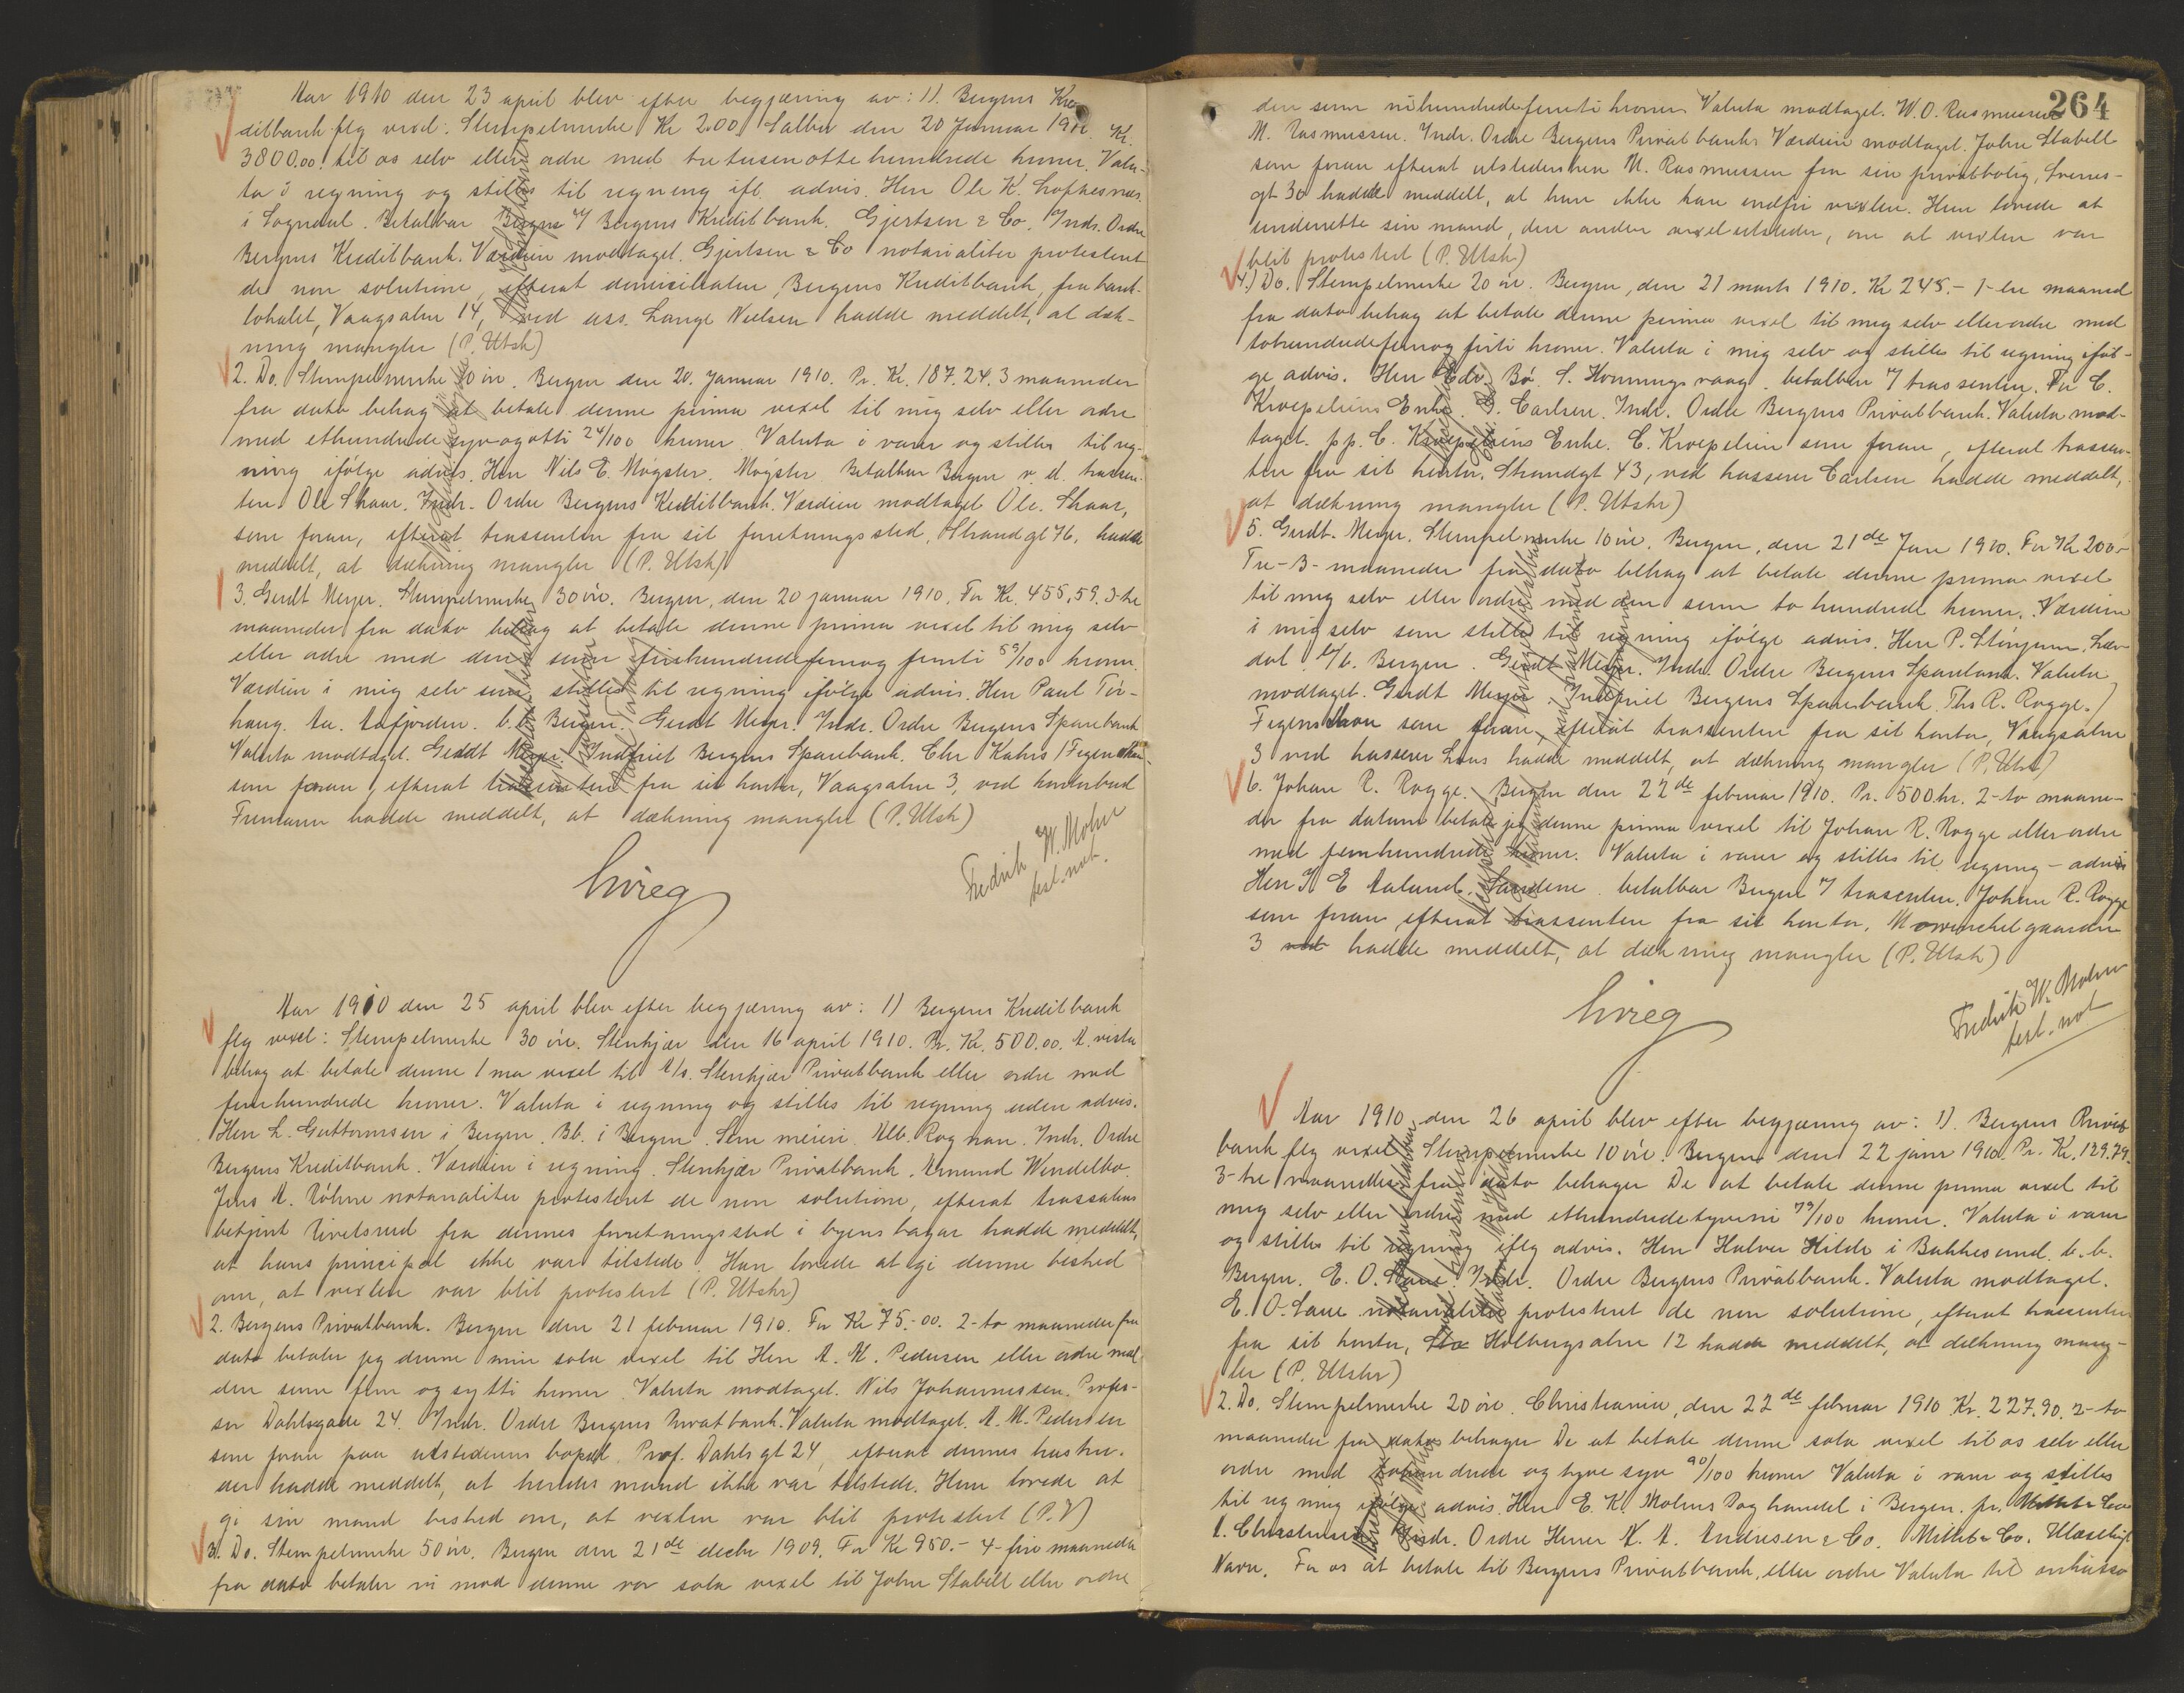 Aar 1910 den 23 april blev efter begjæring av: 1). Bergens Kre-
ditbank flg vexel: Stempelmerke Kr 2.00. Salhus den 20 Januar 1910. Kr.
3800.00. til os selv eller ordre med tre tusen otte hundrede kroner. Valu-
ta i regning og stilles til regning ifl. advis. Herr Ole K. Loftesnæs.
i Sogndal. Betalbar Bergen Bergens Kreditbank. Gjertsen & Co. Indr. Ordre
Bergens Kreditbank. Værdien modtaget. Gjertsen & Co notarialiter protestert
de non solutione, efterat domiciliaten, Bergens Kreditbank, fra bank-
lokalet, Vaagsalm 14, ved ass. Lange Nielsen hadde meddelt, at dæk-
ning mangler (P. Utsk)
2. Do. Stempelmerke 20 øre. Bergen den 20. Januar 1910. Pr. Kr. 187.24. 3 maaneder
fra dato behag at betale denne prima vexel til mig selv eller ordre
med ethundrede syv og otti 24/100 kroner. Valuta i varer og stilles til reg-
ning ifølge advis. Herr Nils E. Møgster. Møgster Betalbar Bergen v. d. trassen-
ten Ole Skaar. Indr. Ordre Bergens Kreditbank. Værdien modtaget Ole Skaar,
som foran, efterat trassenten fra sit forretningssted, Strandgt 76, hadde
meddelt, at dækning mangler (P. Utsk)
3. Gerdt Meyer. Stempelmerke 30 øre. Bergen, den 20 januar 1910. For Kr. 455,59. 3-tre
maaneder fra dato behag at betale denne prima vexel til mig selv
eller ordre med den sum firehundrede fem og femti 59/100 kroner.
Værdien i mig selv som stilles til regning ifølge advis. Herr Paul Tør-
haug. Aafjorden. b.b. Bergen. Gerdt Meyer. Indr. Ordre Bergens Sparebank
Valuta modtaget. Gerdt Meyer. Indfriet Bergens Sparebank. Chr Kahrs / Figenschou
som foran, efterat trassenten fra sit kontor, Vaagsalm 3, ved kontorbud
hadde meddelt, at dækning mangler (P. Utsk)
Fredrik W. Mohn
best. not.
Aar 1910 den 25 april blev efter begjæring av: 1) Bergens Kreditbank
flg vexel: Stempelmerke 30 øre. Stenkjær den 16 april 1910. Pr. Kr. 500.00. A vista
behag at betale denne 1ma vexel til A/s. Stenkjær Privatbank eller ordre med
femhundrede kroner. Valuta i regning og stilles til regning uden advis.
Herr L. Guttormsen i Bergen. Bb. i Bergen. Sem meieri. Alb. Rognan. Indr. Ordre
Bergens Kreditbank. Værdien i regning. Stenkjær Privatbank. Amund Wendelbo.
Jens A. Røhne notarialiter protesteret de non solutione, efterat trassatens
betjent fra dennes forretningssted i byens bazar hadde meddelt,
at hans principal ikke var tilstede. Han lovede at gi denne besked
om, at vexlen var blit protestert (P. Utskr)
2. Bergens Privatbank. Bergen den 21 februar 1910. For Kr 75.-00. 2-to maaneder fra
dato betaler jeg denne min sola vexel til Herr A. M. Pedersen eller ordre med
den sum fem og sytti kroner. Valuta modtaget. Nils Johannessen. Profes-
sor Dahlsgade 24. Indr. Ordre Bergens Privatbank. Valuta modtaget. A. M. Pedersen
som foran paa utstederens bopæl, Prof. Dahls gt 24, efterat dennes hustru
der hadde meddelt, at hendes mand ikke var tilstede. Hun lovede at
gi sin mand besked om, at vexlen var blit protestert (P.V)
3. Do. Stempelmerke 50 øre. Bergen den 21de decbr 1909. For Kr 950.- 4-fire maaneder
fra dato betaler vi mod denne vor sola vexel til John Stabell eller ordre
264
den sum nihundrede femti kroner Valuta modtaget. W. O. Rasmussen
M. Rasmussen. Indr. Ordre Bergens Privatbank Værdien modtaget. John Stabell
som foran efterat utstedersken M. Rasmussen fra sin privatbolig,
gt 30 hadde meddelt, at hun ikke kan indfri vexlen. Hun lovede at
underrette sin mand, den anden vexelutsteder, om at vexlen var
blit protestert (P. Utsk)
4.) Do. Stempelmerke 20 øre. Bergen, den 21 marts 1910. Kr 245.- 1-en maaned
fra dato behag at betale denne prima vexel til mig selv eller ordre med
tohundrede fem og firti kroner. Valuta i mig selv og stilles til regning iføl-
ge advis. Herr Edv. Bø. S. Honningsvaag. betalbar trassenten. For C.
Kroepeliens Enke. C. Carlsen. Indr. Ordre Bergens Privatbank. Valuta mod-
taget. pp. C. Kroepeliens Enke. C. Kroepelien som foran, efterat trassen-
ten fra sit kontor, Strandgt 43, ved kasserer Carlsen hadde meddelt,
at dækning mangler (P. Utskr)
5. Gerdt. Meyer. Stempelmerke 10 øre. Bergen, den 21de Jan 1910. For Kr 200.-
Tre-3-maaneder fra dato behag at betale denne prima vexel
til mig selv eller ordre med den sum to hundrede kroner. Værdien
i mig selv som stilles til regning ifølge advis. Herr P. Stønjum. Lær-
dal b/b. Bergen. Gerdt Meyer. Indr. Ordre Bergens Sparebank. Valuta
modtaget. Gerdt Meyer Indfriet Bergens Sparebank. Ths R. Rogge./
Figenschou som foran, efterat trassenten fra sit kontor, Vaagsalm
3 ved kasserer Laus hadde meddelt, at dækning mangler (P. Utsk)
6. Johan R. Rogge. Bergen den 22de februar 1910. Pr. 500 kr. 2-to maane-
der fra datum betale jeg denne prima vexel til Johan R. Rogge eller ordre
med femhundrede kroner. Valuta i varer og stilles til regning - advis
Herr I E Aaland. Sandene. betalbar Bergen trassenten. Johan R. Rogge
som foran efterat trassenten fra sit kontor, Mowinckelgaarden
3 ved hadde meddelt, at dækning mangler (P. Utsk)
Fredrik W. Mohn
best. not
Aar 1910 den 26 april blev efter begjæring av: 1). Bergens Privat
bank flg vexel Stempelmerke 10 øre. Bergen den 22 janr 1910. Pr. Kr. 129.79.
3-tre maaneder fra dato behager De at betale denne prima vexel til
mig selv eller ordre med ethundredetyveni 79/100 kroner. Valuta i varer
og stilles til regning iflg advis. Herr Halvor Hilde i Bakkesund. b.b.
Bergen. E. O. Indr. Ordre Bergens Privatbank. Valuta modtaget.
E. O. notarialiter protesteret de non solutione, efterat trassenten
fra sit kontor, Holbergsalm 12 hadde meddelt, at dækning mang-
ler (P. Utskr)
2. Do. Stempelmerke 20 øre. Christiania, den 22de februar 1910 Kr. 227.90. 2-to
maaneder fra dato behager De at betale denne sola vexel til os selv eller
ordre med tohundrede og tyve syv 90/100 kroner Valuta i varer og stilles
til regning ifølge advis. Herr E. K. Mohns Daghandel i Bergen. pr.
A. Indr. Ordre Herrer N. A. Andresen & Co.
Navn. For os at betale til Bergens Privatbank, eller ordre Valuta til